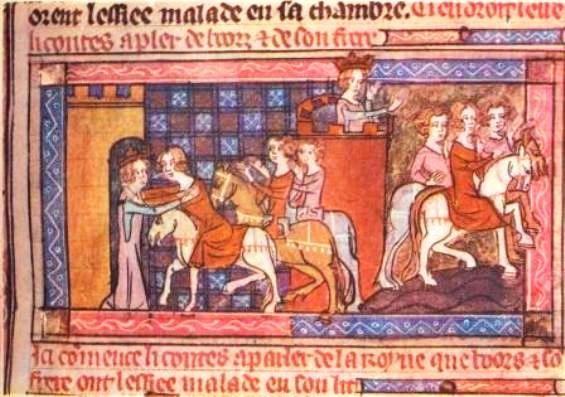 orent lessiee malade en sa chambre. Ci endroit leue
li contes a pler de boorz & de son frere
Ici cōmence li contes a parler de la Royne que boors & so
frere ont lessiee malade en son lit